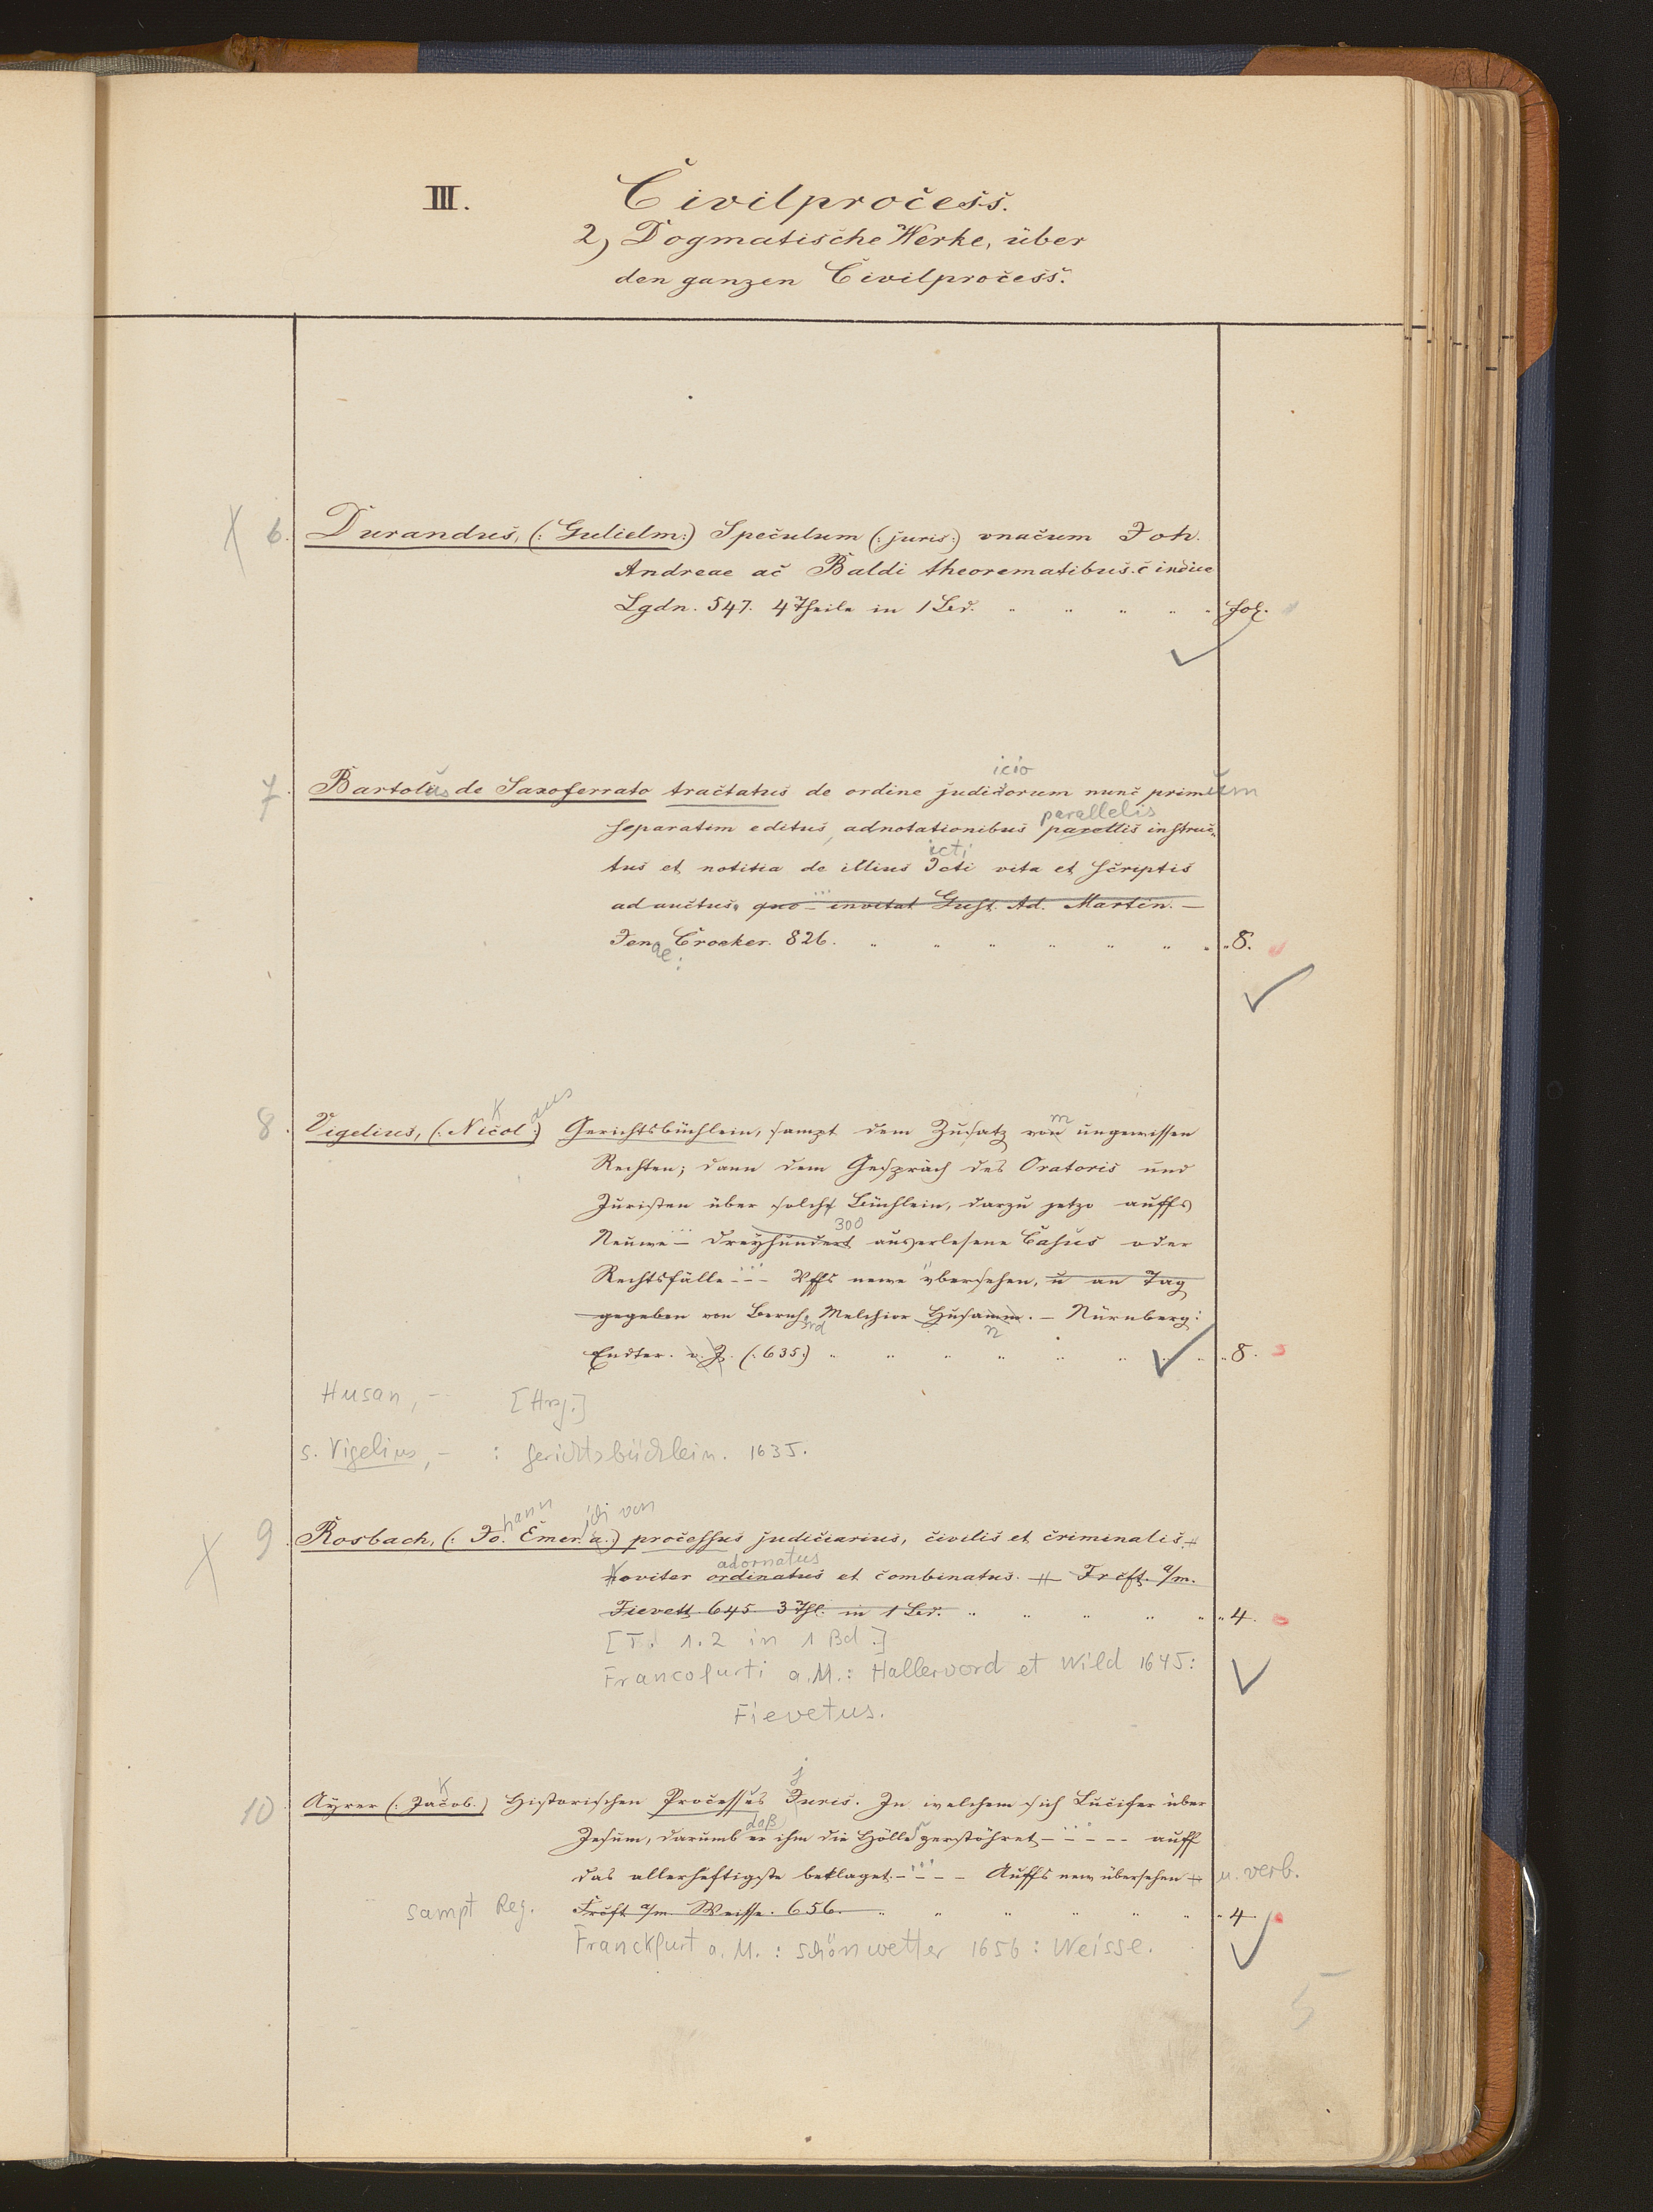 III. Civilprocess.
2) Dogmatische Werke, über
den ganzen Civilprocess.
X 6. Durandus, (: Gulielm:) Speculum (: juris:) vnacum Joh.
Andreae ac Baldi theorematibus. c indice
Lgdn. 547. 4 Theile in 1 Bd. " " " " " fol.
icio
7. Bartolus de Saxoferrato tractatus de ordine judiciorum nunc primum
parallelis
separatim editus, adnotationibus parellis instruc-
icti
tus et notitia de illius Icti vita et scriptis
ad auctus, quo - invitat Gust. Ad. Martin. -
Jenae: Croeker. 826. " " " " " " " " 8.
k aus m
8. Vigelius, (: Nicol:) Gerichtsbüchlein, sampt dem Zusatz von ungewissen
Rechten; dann dem Gespräch des Oratoris und
Juristen über solchs Büchlein, darzu jetzo auffs
300
Neuwe - dreyhundert auserlesene Casus oder
Rechtsfälle - - - Vffs newe vbersehen, u an Tag
gegeben von Bernh. Melchior Husamm. - Nürnberg:
rd n
Endter. o. J. (: 635:) " " " " " " " " 8.
Husan, - [Hrsg.]
s. Vigelius, - : Gerichtsbüchlein. 1635.
hann ich von
X 9. Rosbach, (: Jo. Emer. a.:) processus judiciarius, civilis et criminalis.
adornatus
Noviter ordinatus et combinatus. Frcft. a/m.
Fievett 645 3 Thl. in 1 Bd. " " " " " " 4.
[T. 1.2 in 1 Bd.]
Francofurti a. M.: Hallervord et Wild 1645:
Fievetus.
k j
10. Ayrer (: Jacob:) Historischen Processus Juris. In welchem sich Lucifer über
daß
Jesum, darumb er ihm die Hölle zerstöhret - - - - - auff
das allerheftigste beklaget. - - - - Auffs new übersehen u. verb.
sampt Reg. Frcft a/m. Weisse. 656. " " " " " " 4.
Franckfurt a. M.: Schönwetter 1656: Weisse.
5